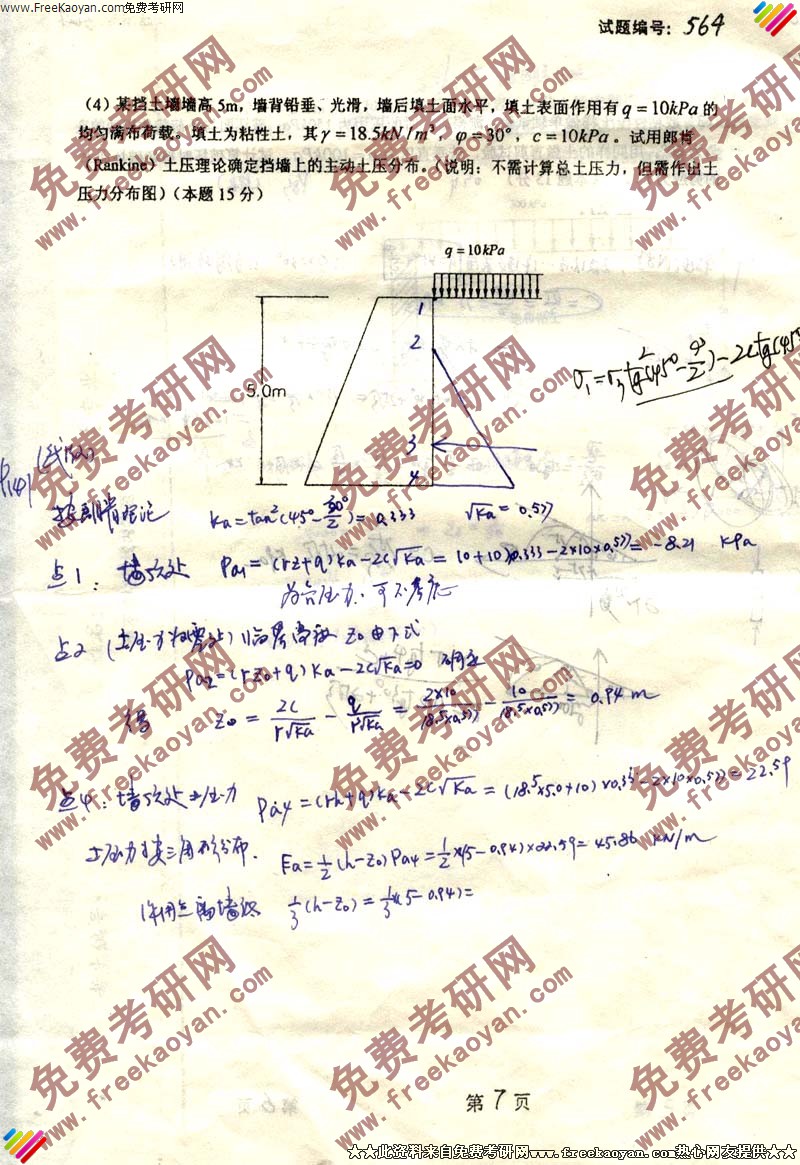 www.FreeKaoyan.com免费考研网
试题编号: 564
(4)某挡土墙墙高5m，墙背铅垂、光滑，墙后填土面水平，填土表面作用有q=10kPa的
均匀满布荷载。填土为粘性土，其γ=18.5kN/m³，φ=30°，c=10kPa。试用郎肯
（Rankine）土压理论确定挡墙上的主动土压分布。（说明：不需计算总土压力，但需作出土
压力分布图）（本题15分）
q=10kPa
1
2
5.0m
3
4
σ1=σ3tg²(45°-φ/2)-2ctg(45°
Ka=tan²(45°-30°/2)=0.333 √Ka=0.577
点1: 墙顶处 Pa1=(rz+q)Ka-2c√Ka=(0+10)0.333-2×10×0.577=-8.21 KPa
点2 (土压力为零处) 临界高度 Z0由下式
Pa2=(rz0+q)Ka-2c√Ka=0 确定
得 Z0=2c/r√Ka-q/r√Ka=2×10/(18.5×0.577)-10/(18.5×0.577)=0.94m
点4: 墙 处土压力 Pa4=(rh+q)Ka-2c√Ka=(18.5×5.0+10)×0.333-2×10×0.577=22.59
土压力 三角形分布. Ea=1/2(h-Z0)Pa4=1/2×(5-0.94)×22.59=45.86 KN/m
作用点离墙底 1/3(h-Z0)=1/3×(5-0.94)=
第7页
★★此资料来自免费考研网www.freekaoyan.com热心网友提供★★
免费考研网
www.freekaoyan.com